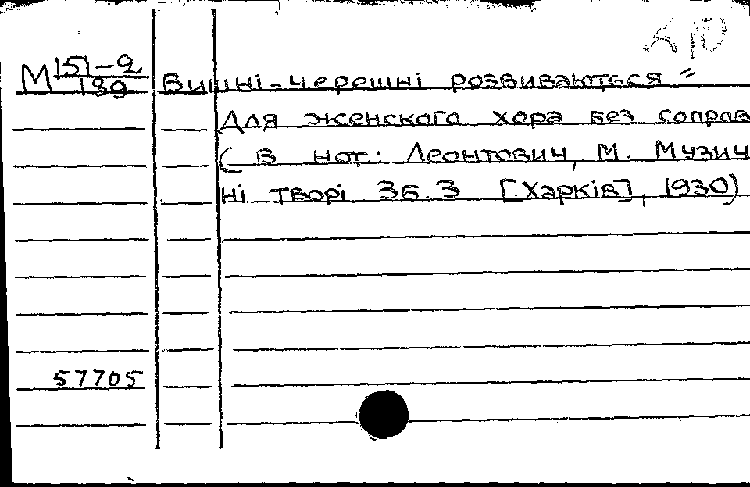 М 151-2/189 Вишні-черешні розвиваються"
Для женского хора без сопров
(В нот: Леонтович, М. Музич
ні творі Зб.3 [Харків], 1930)
57705